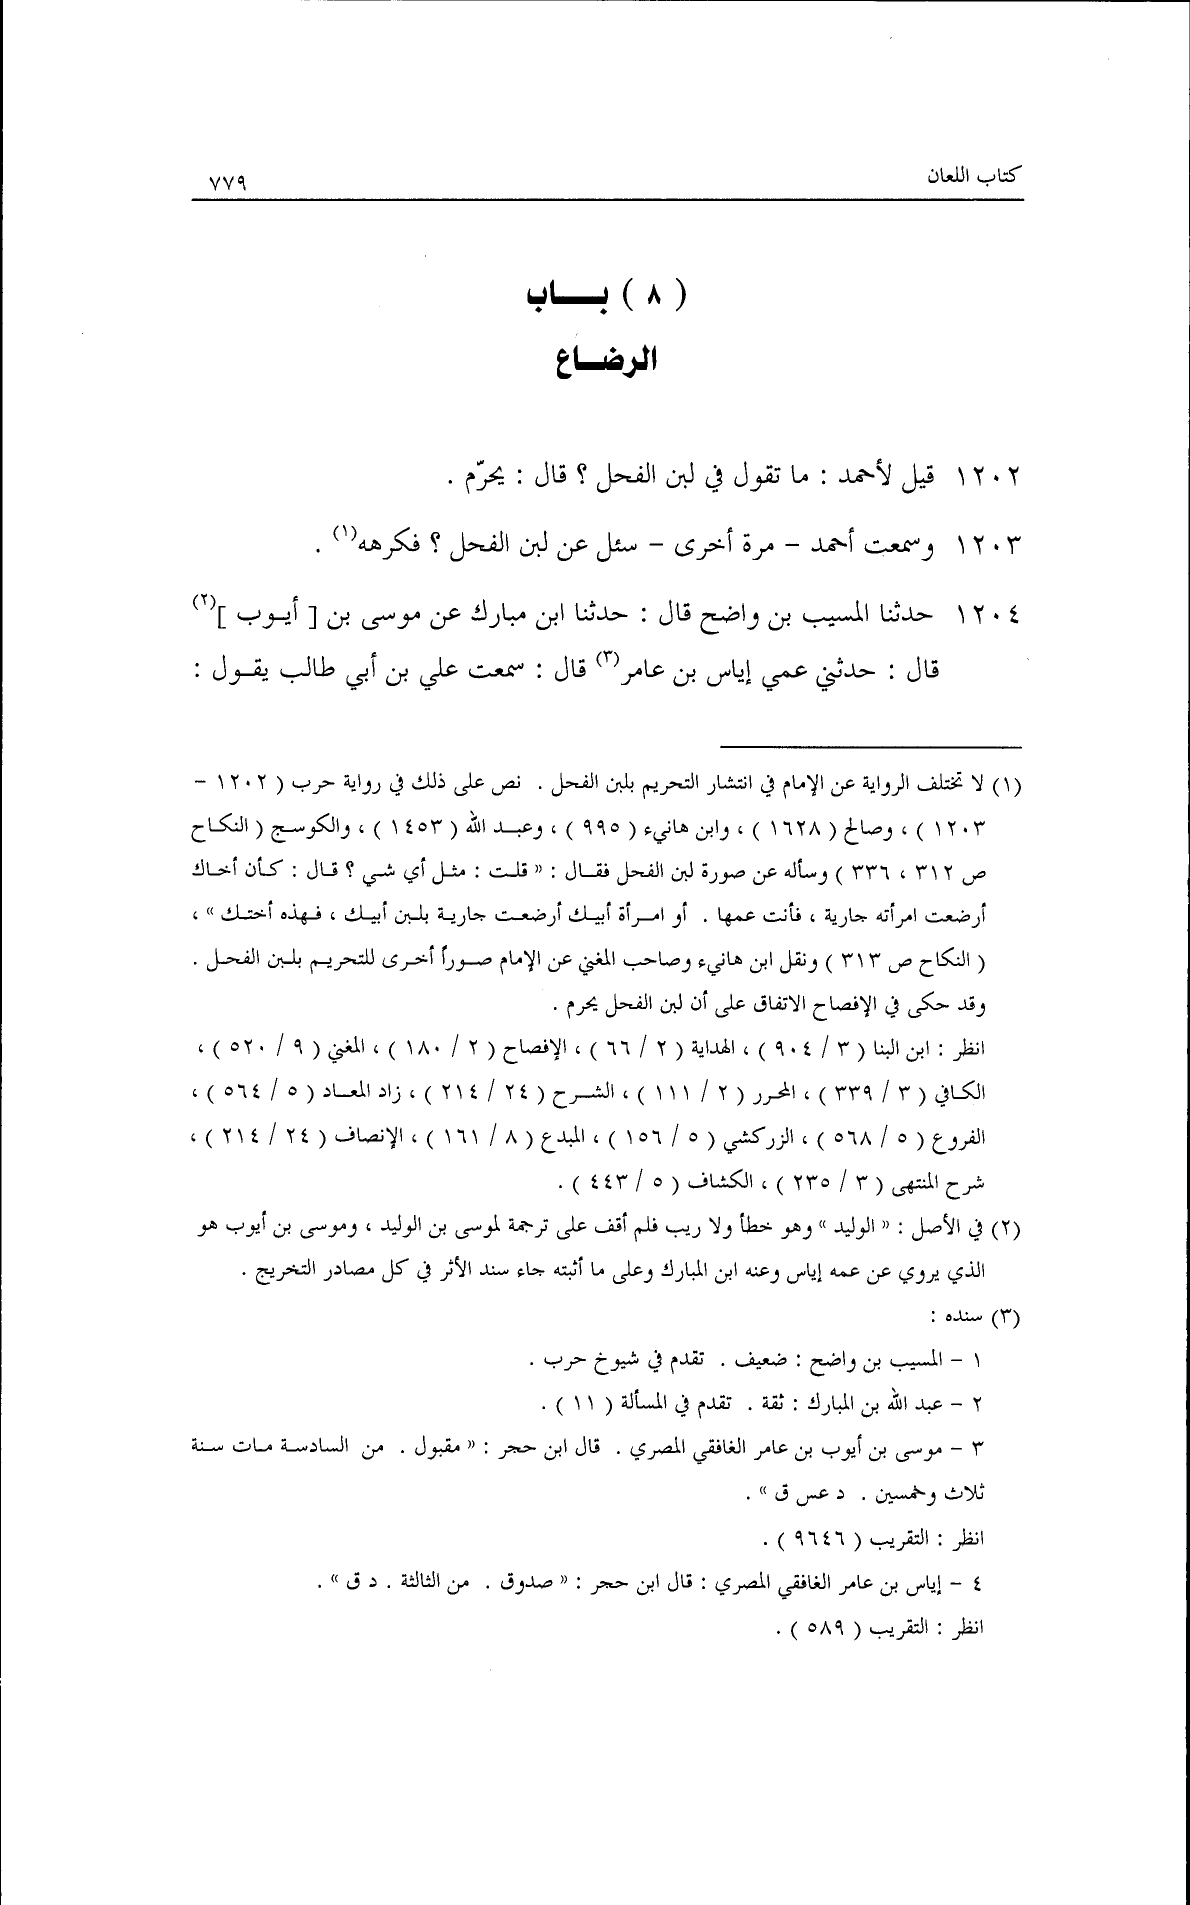 كتاب اللعان
٧٧٩
( ٨ ) بـــاب
الرضـاع
١٢٠٢ قيل لأحمد : ما تقول في لبن الفحل ؟ قال : يحرّم .
١٢٠٣ وسمعت أحمد – مرة أخرى – سئل عن لبن الفحل ؟ فكرهه(١) .
١٢٠٤ حدثنا المسيب بن واضح قال : حدثنا ابن مبارك عن موسى بن [ أيـوب ](٢)
قال : حدثني عمي إياس بن عامر(٣) قال : سمعت علي بن أبي طالب يقـول :
(١) لا تختلف الرواية عن الإمام في انتشار التحريم بلبن الفحل . نص على ذلك في رواية حرب ( ١٢٠٢ –
١٢٠٣ ) ، وصالح ( ١٦٢٨ ) ، وابن هانيء ( ٩٩٥ ) ، وعبـد الله ( ١٤٥٣ ) ، والكوسـج ( النكـاح
ص ٣١٢ ، ٣٣٦ ) وسأله عن صورة لبن الفحل فقـال : « قلـت : مثـل أي شي ؟ قـال : كـأن أخـاك
أرضعت امرأته جارية ، فأنت عمها . أو امـرأة أبيـك أرضعـت جاريـة بلـبن أبيـك ، فـهذه أختـك » ،
( النكاح ص ٣١٣ ) ونقل ابن هانيء وصاحب المغني عن الإمام صـوراً أخـرى للتحريـم بلـبن الفحـل .
وقد حكى في الإفصاح الاتفاق على أن لبن الفحل يحرم .
انظر : ابن البنا ( ٣ / ٩٠٤ ) ، الهداية ( ٢ / ٦٦ ) ، الإفصاح ( ٢ / ١٨٠ ) ، المغني ( ٩ / ٥٢٠ ) ،
الكـافي ( ٣ / ٣٣٩ ) ، المحـرر ( ٢ / ١١١ ) ، الشـرح ( ٢٤ / ٢١٤ ) ، زاد المعـاد ( ٥ / ٥٦٤ ) ،
الفروع ( ٥ / ٥٦٨ ) ، الزركشي ( ٥ / ١٥٦ ) ، المبدع ( ٨ / ١٦١ ) ، الإنصاف ( ٢٤ / ٢١٤ ) ،
شرح المنتهى ( ٣ / ٢٣٥ ) ، الكشاف ( ٥ / ٤٤٣ ) .
(٢) في الأصل : « الوليد » وهو خطأ ولا ريب فلم أقف على ترجمة لموسى بن الوليد ، وموسى بن أيوب هو
الذي يروي عن عمه إياس وعنه ابن المبارك وعلى ما أثبته جاء سند الأثر في كل مصادر التخريج .
(٣) سنده :
١ – المسيب بن واضح : ضعيف . تقدم في شيوخ حرب .
٢ – عبد الله بن المبارك : ثقة . تقدم في المسألة ( ١١ ) .
٣ – موسى بن أيوب بن عامر الغافقي المصري . قال ابن حجر : « مقبول . من السادسـة مـات سـنة
ثلاث وخمسين . د عس ق » .
انظر : التقريب ( ٩٦٤٦ ) .
٤ – إياس بن عامر الغافقي المصري : قال ابن حجر : « صدوق . من الثالثة . د ق » .
انظر : التقريب ( ٥٨٩ ) .